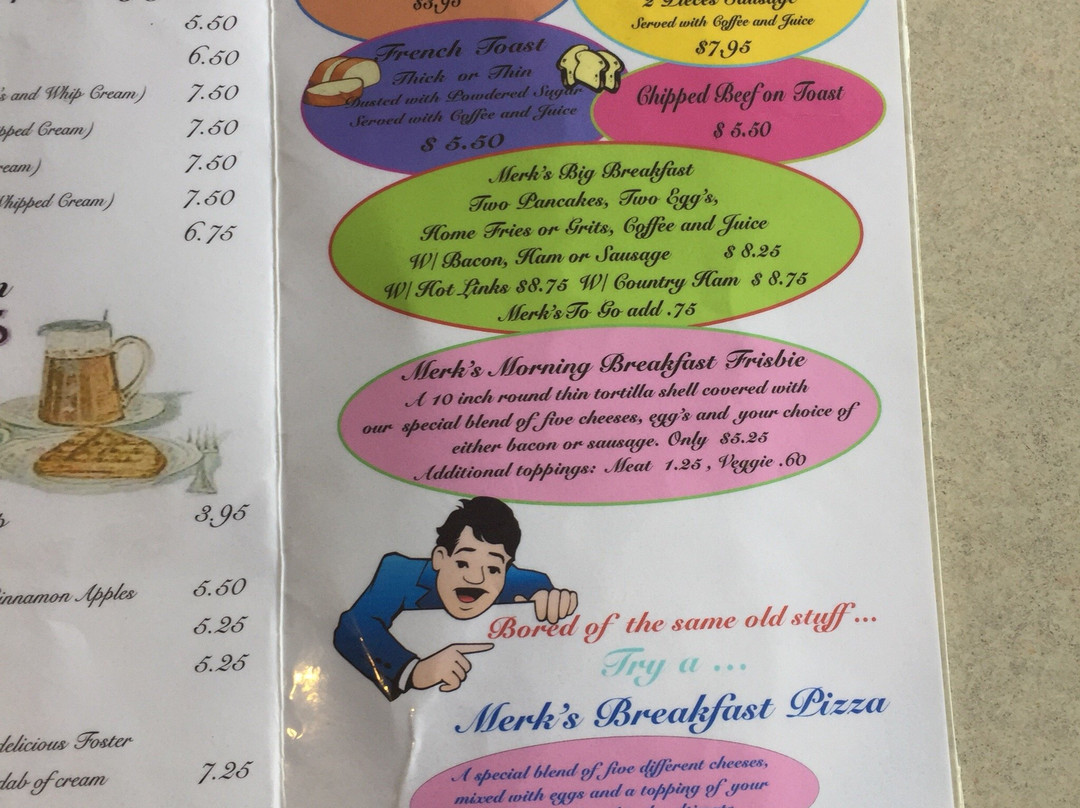 5.50
6.50
's and Whip Cream) 7.50
pped Cream) 7.50
ream) 7.50
Whipped Cream) 7.50
6.75
n
5
3.95
innamon Apples 5.50
5.25
5.25
delicious Foster
dab of cream 7.25
$5,95
2 Pieces Sausage
Served with Coffee and Juice
$7,95
French Toast
Thick or Thin
Dusted with Powdered Sugar
Served with Coffee and Juice
$ 5.50
Chipped Beef on Toast
$ 5.50
Merk's Big Breakfast
Two Pancakes, Two Egg's,
Home Fries or Grits, Coffee and Juice
W/ Bacon, Ham or Sausage $ 8.25
W/ Hot Links $8.75 W/ Country Ham $ 8.75
Merk's To Go add .75
Merk's Morning Breakfast Frisbie
A 10 inch round thin tortilla shell covered with
our special blend of five cheeses, egg's and your choice of
either bacon or sausage. Only $5.25
Additional toppings: Meat 1.25 , Veggie .60
Bored of the same old stuff...
Try a ...
Merk's Breakfast Pizza
A special blend of five different cheeses,
mixed with eggs and a topping of your